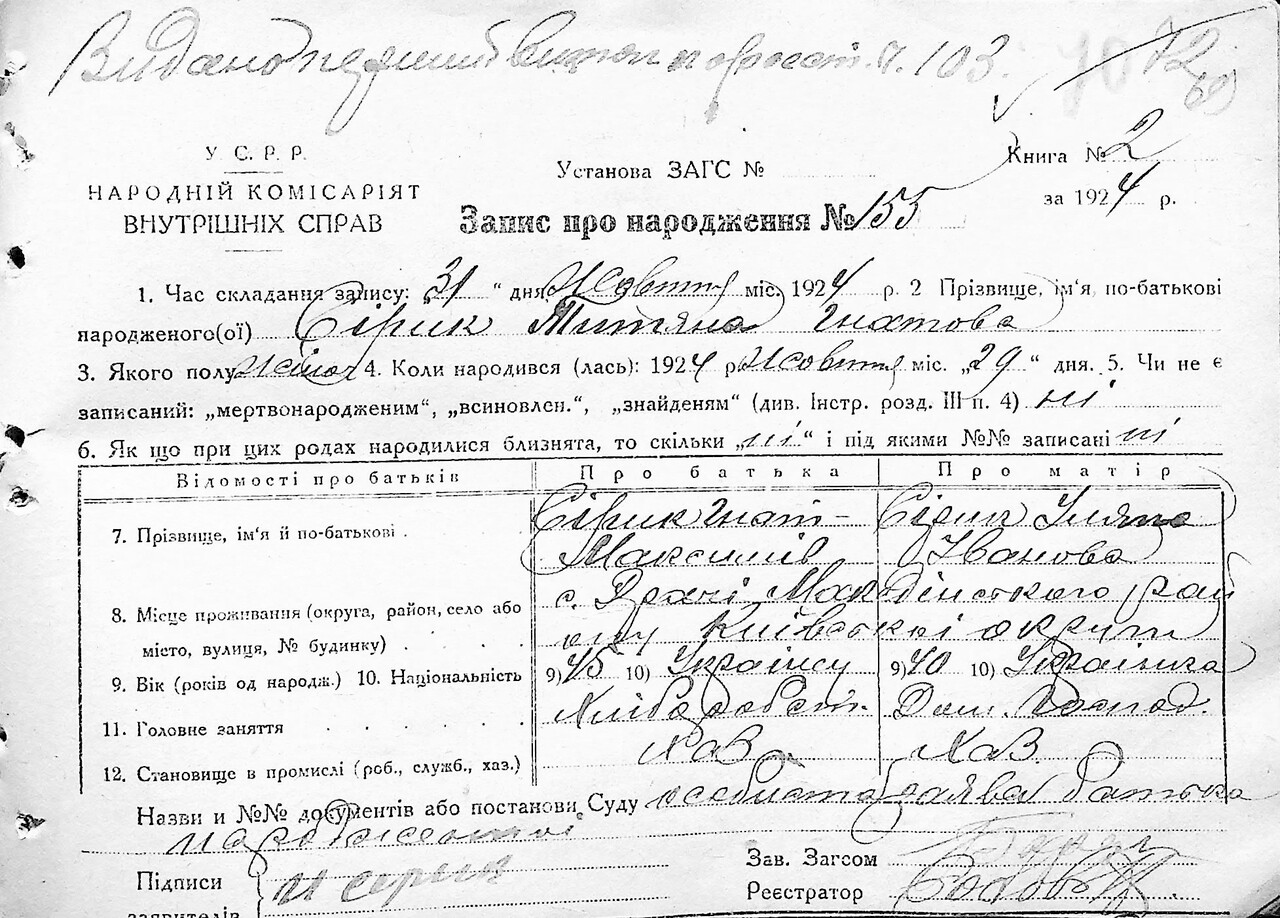 Видано перший витяг по реєст. ч. 103.
72
У. С. Р. Р.
НАРОДНІЙ КОМІСАРІЯТ
ВНУТРІШНІХ СПРАВ
Установа ЗАГС №
Книга № 2
за 1924 р.
Запис про народження № 155
1. Час складання запису: „31“ дня Жовтня міс. 1924 р. 2 Прізвище, ім'я, по-батькові
народженого(ої) Сірик Титяна Гнатова
3. Якого полу жіноч 4. Коли народився (лась): 1924 р Жовтня міс. „29“ дня. 5. Чи не є
записаний: „мертвонародженим“, „всиновлєн.“, „знайденям“ (див. Інстр. розд. III п. 4) ні
6. Як що при цих родах народилися близнята, то скільки „ні“ і під якими №№ записані ні
Відомості про батьків Про батька Про матір
7. Прізвище, ім'я й по-батькові . Сірик Гнат Максимів Сірик Уляна Іванова
8. Місце проживання (округа, район, село або
місто, вулиця, № будинку) . . . с. Врачі Київської округи
9. Вік (років од народж.) 10. Національність 9) 45 10) Українец 9) 40 10) Українка
11. Головне заняття . . . . . Хлібороб Дом. господ.
12. Становище в промислі (роб., служб., хаз.) Хаз Хаз.
Назви и №№ документів або постанови Суду особиста заява батька
народженої
Підписи
заявителів
И Серик
Зав. Загсом
Реєстратор